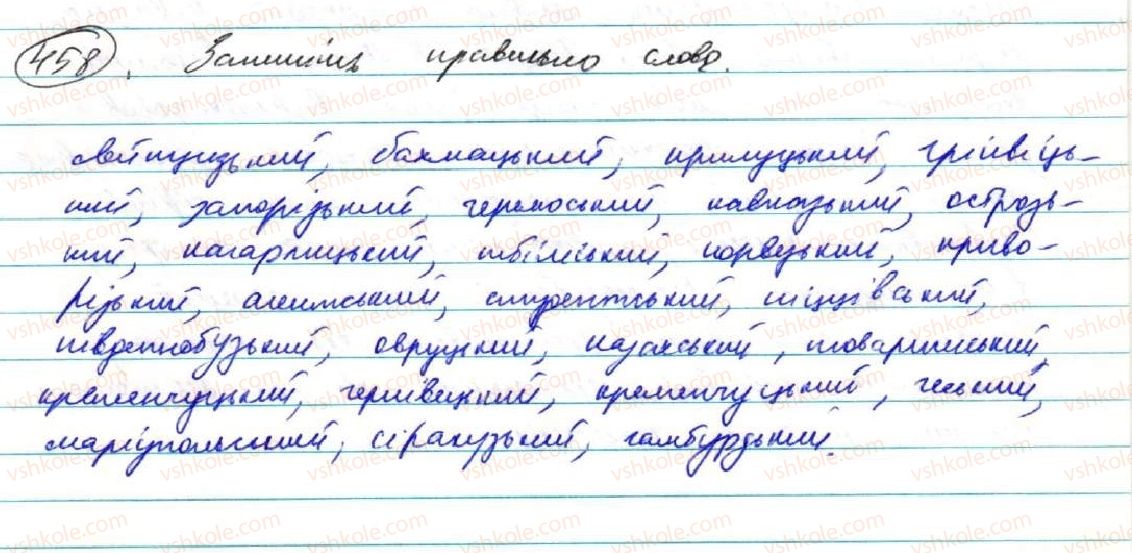 458. Запишіть правильно слова.
свійицузький, бахмацький, прилуцький, грінвіць-
кий, запорізький, черкаський, кавказький, острозь-
кий, кагарлицький, тбіліський, норвезький, криво-
різький, студентський,
південнобузький, овруцький, казахський, товариський,
кременчуцький, чернівецький, кременчуцький, чеський,
маріупольський, сіракузький, гамбурзький.